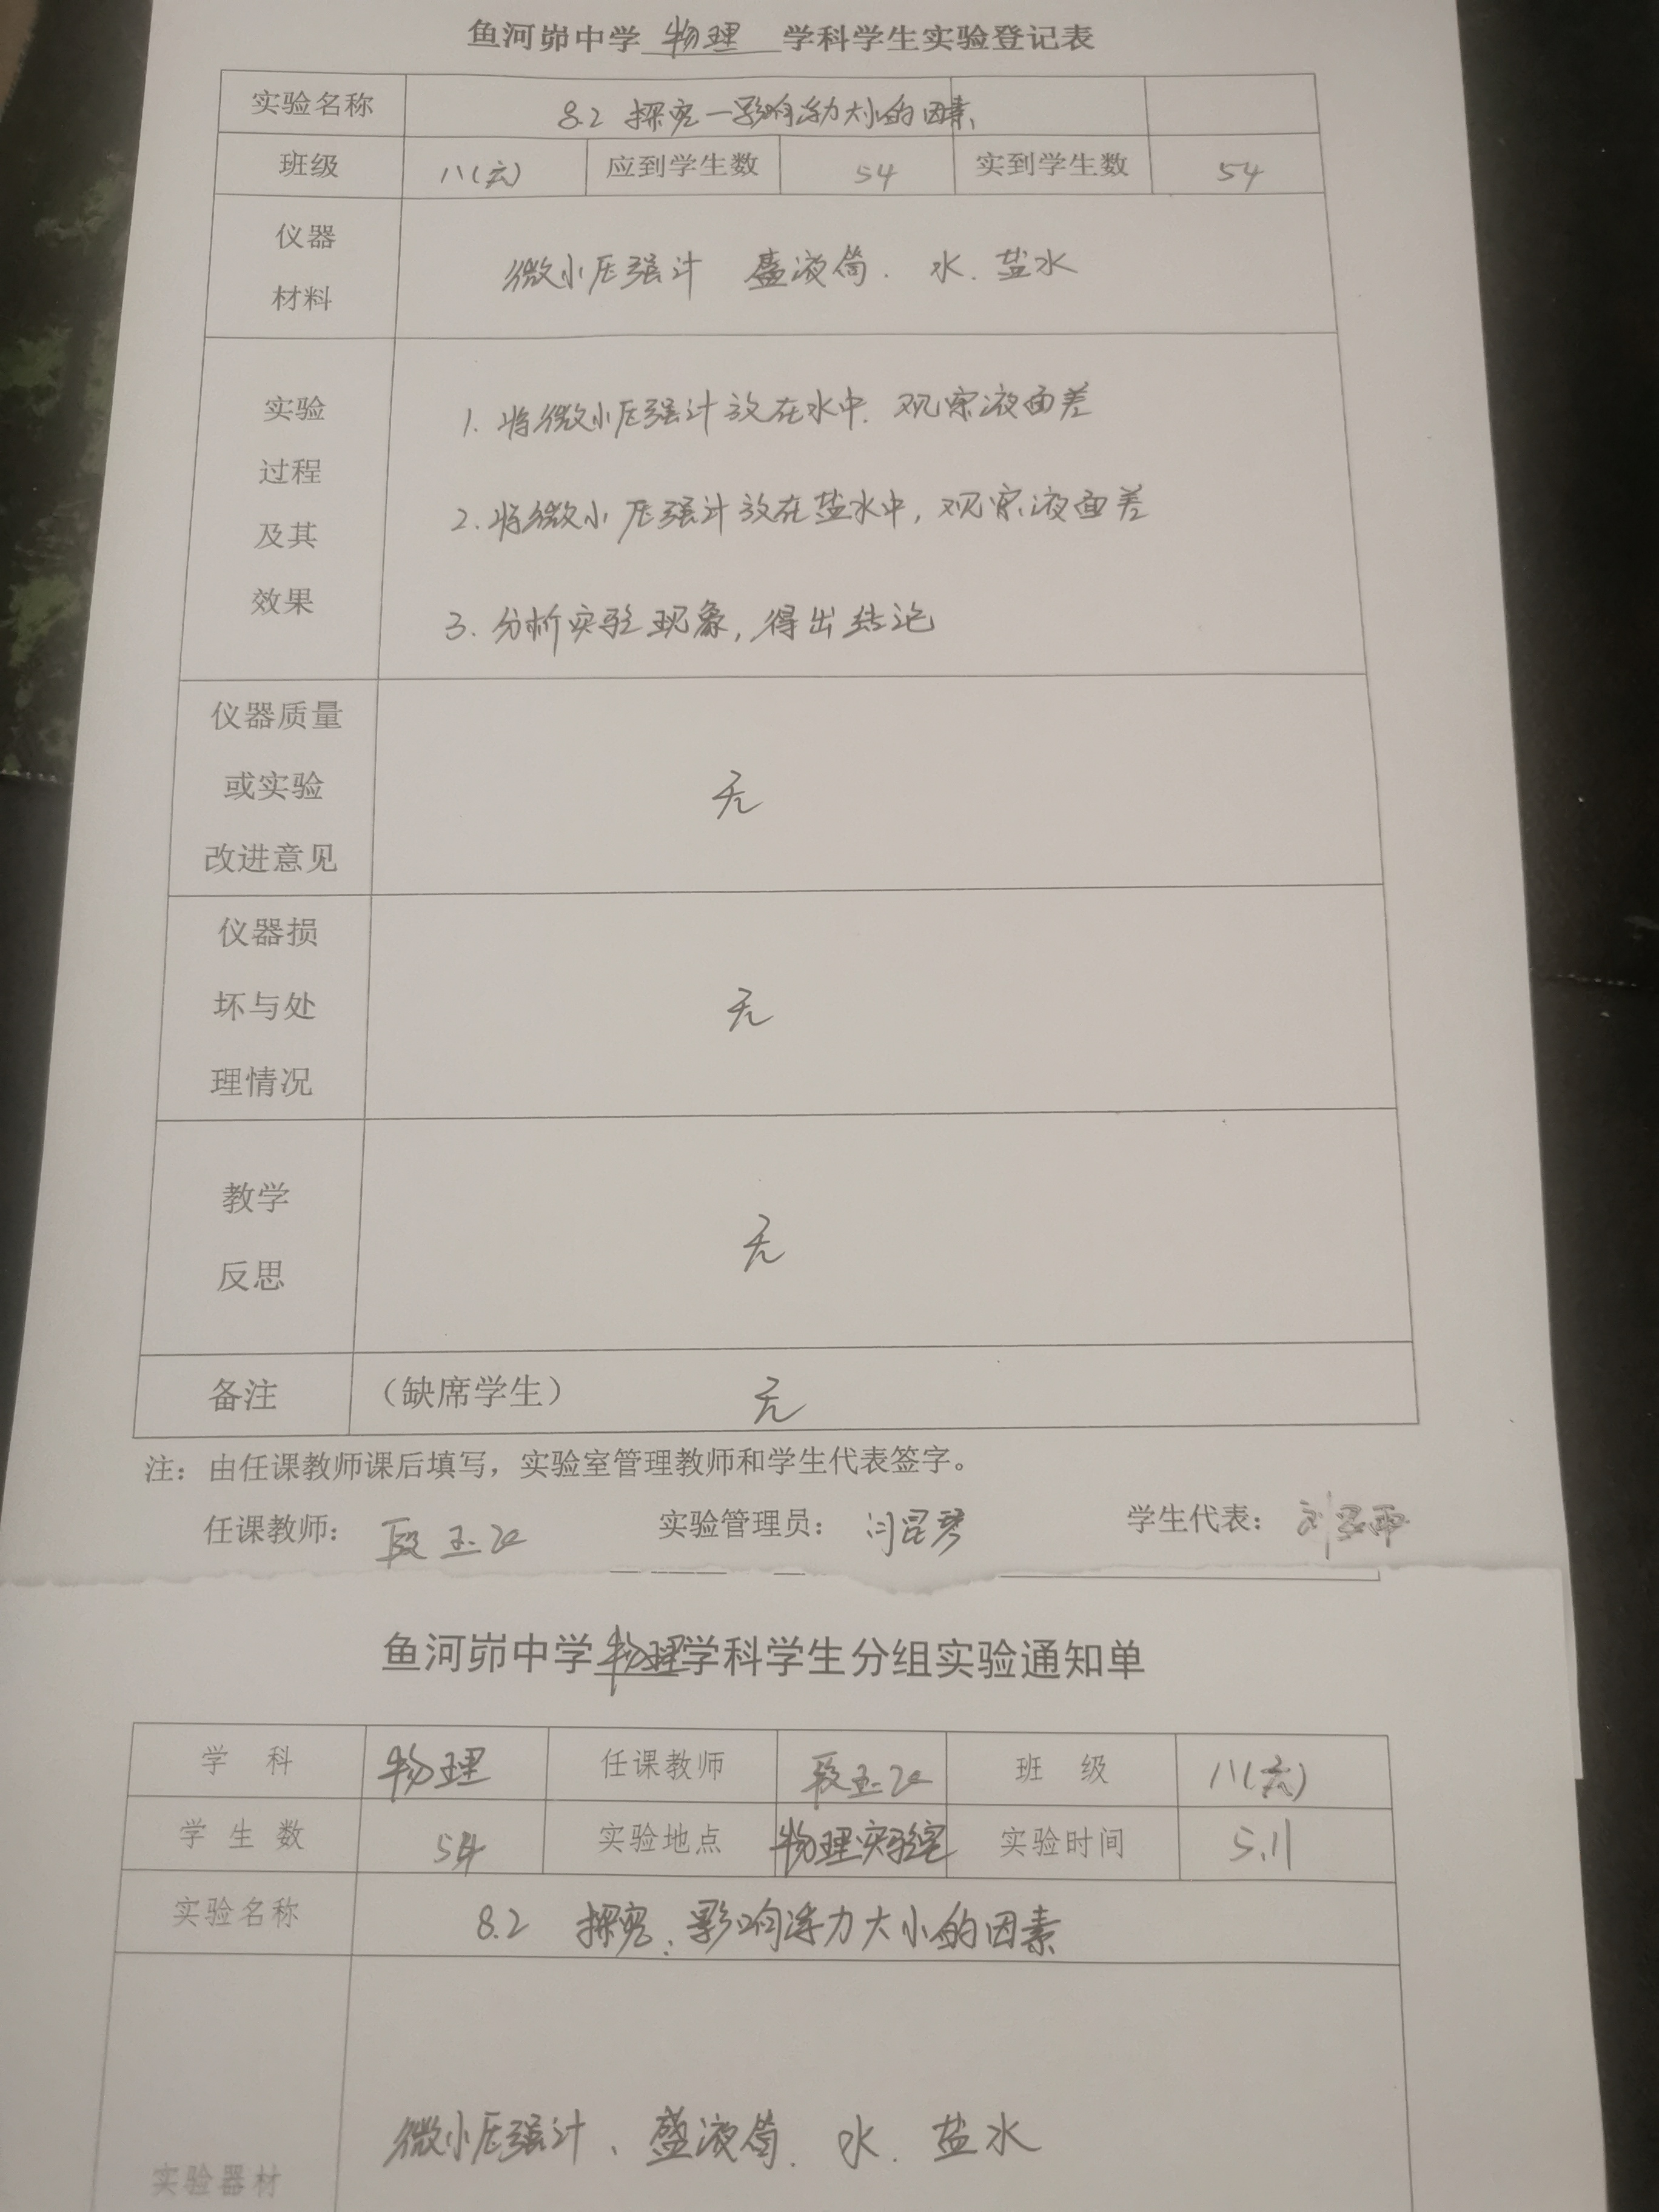 鱼河峁中学 物理 学科学生实验登记表
实验名称 8.2 探究—影响浮力大小的因素
班级 八(六) 应到学生数 54 实到学生数 54
仪器
材料
微小压强计 盛液筒. 水. 盐水
实验
过程
及其
效果
1. 将微小压强计放在水中. 观察液面差
2. 将微小压强计放在盐水中, 观察液面差
3. 分析实验现象, 得出结论
仪器质量
或实验
改进意见
无
仪器损
坏与处
理情况
无
教学
反思
无
备注 （缺席学生） 无
注：由任课教师课后填写，实验室管理教师和学生代表签字。
任课教师： 段玉 实验管理员： 闫昆琴 学生代表： 刘
鱼河峁中学物理学科学生分组实验通知单
学 科 物理 任课教师 段玉 班 级 八(六)
学 生 数 54 实验地点 物理实验室 实验时间 5.11
实验名称 8.2 探究: 影响浮力大小的因素
微小压强计、盛液筒. 水. 盐水
实验器材